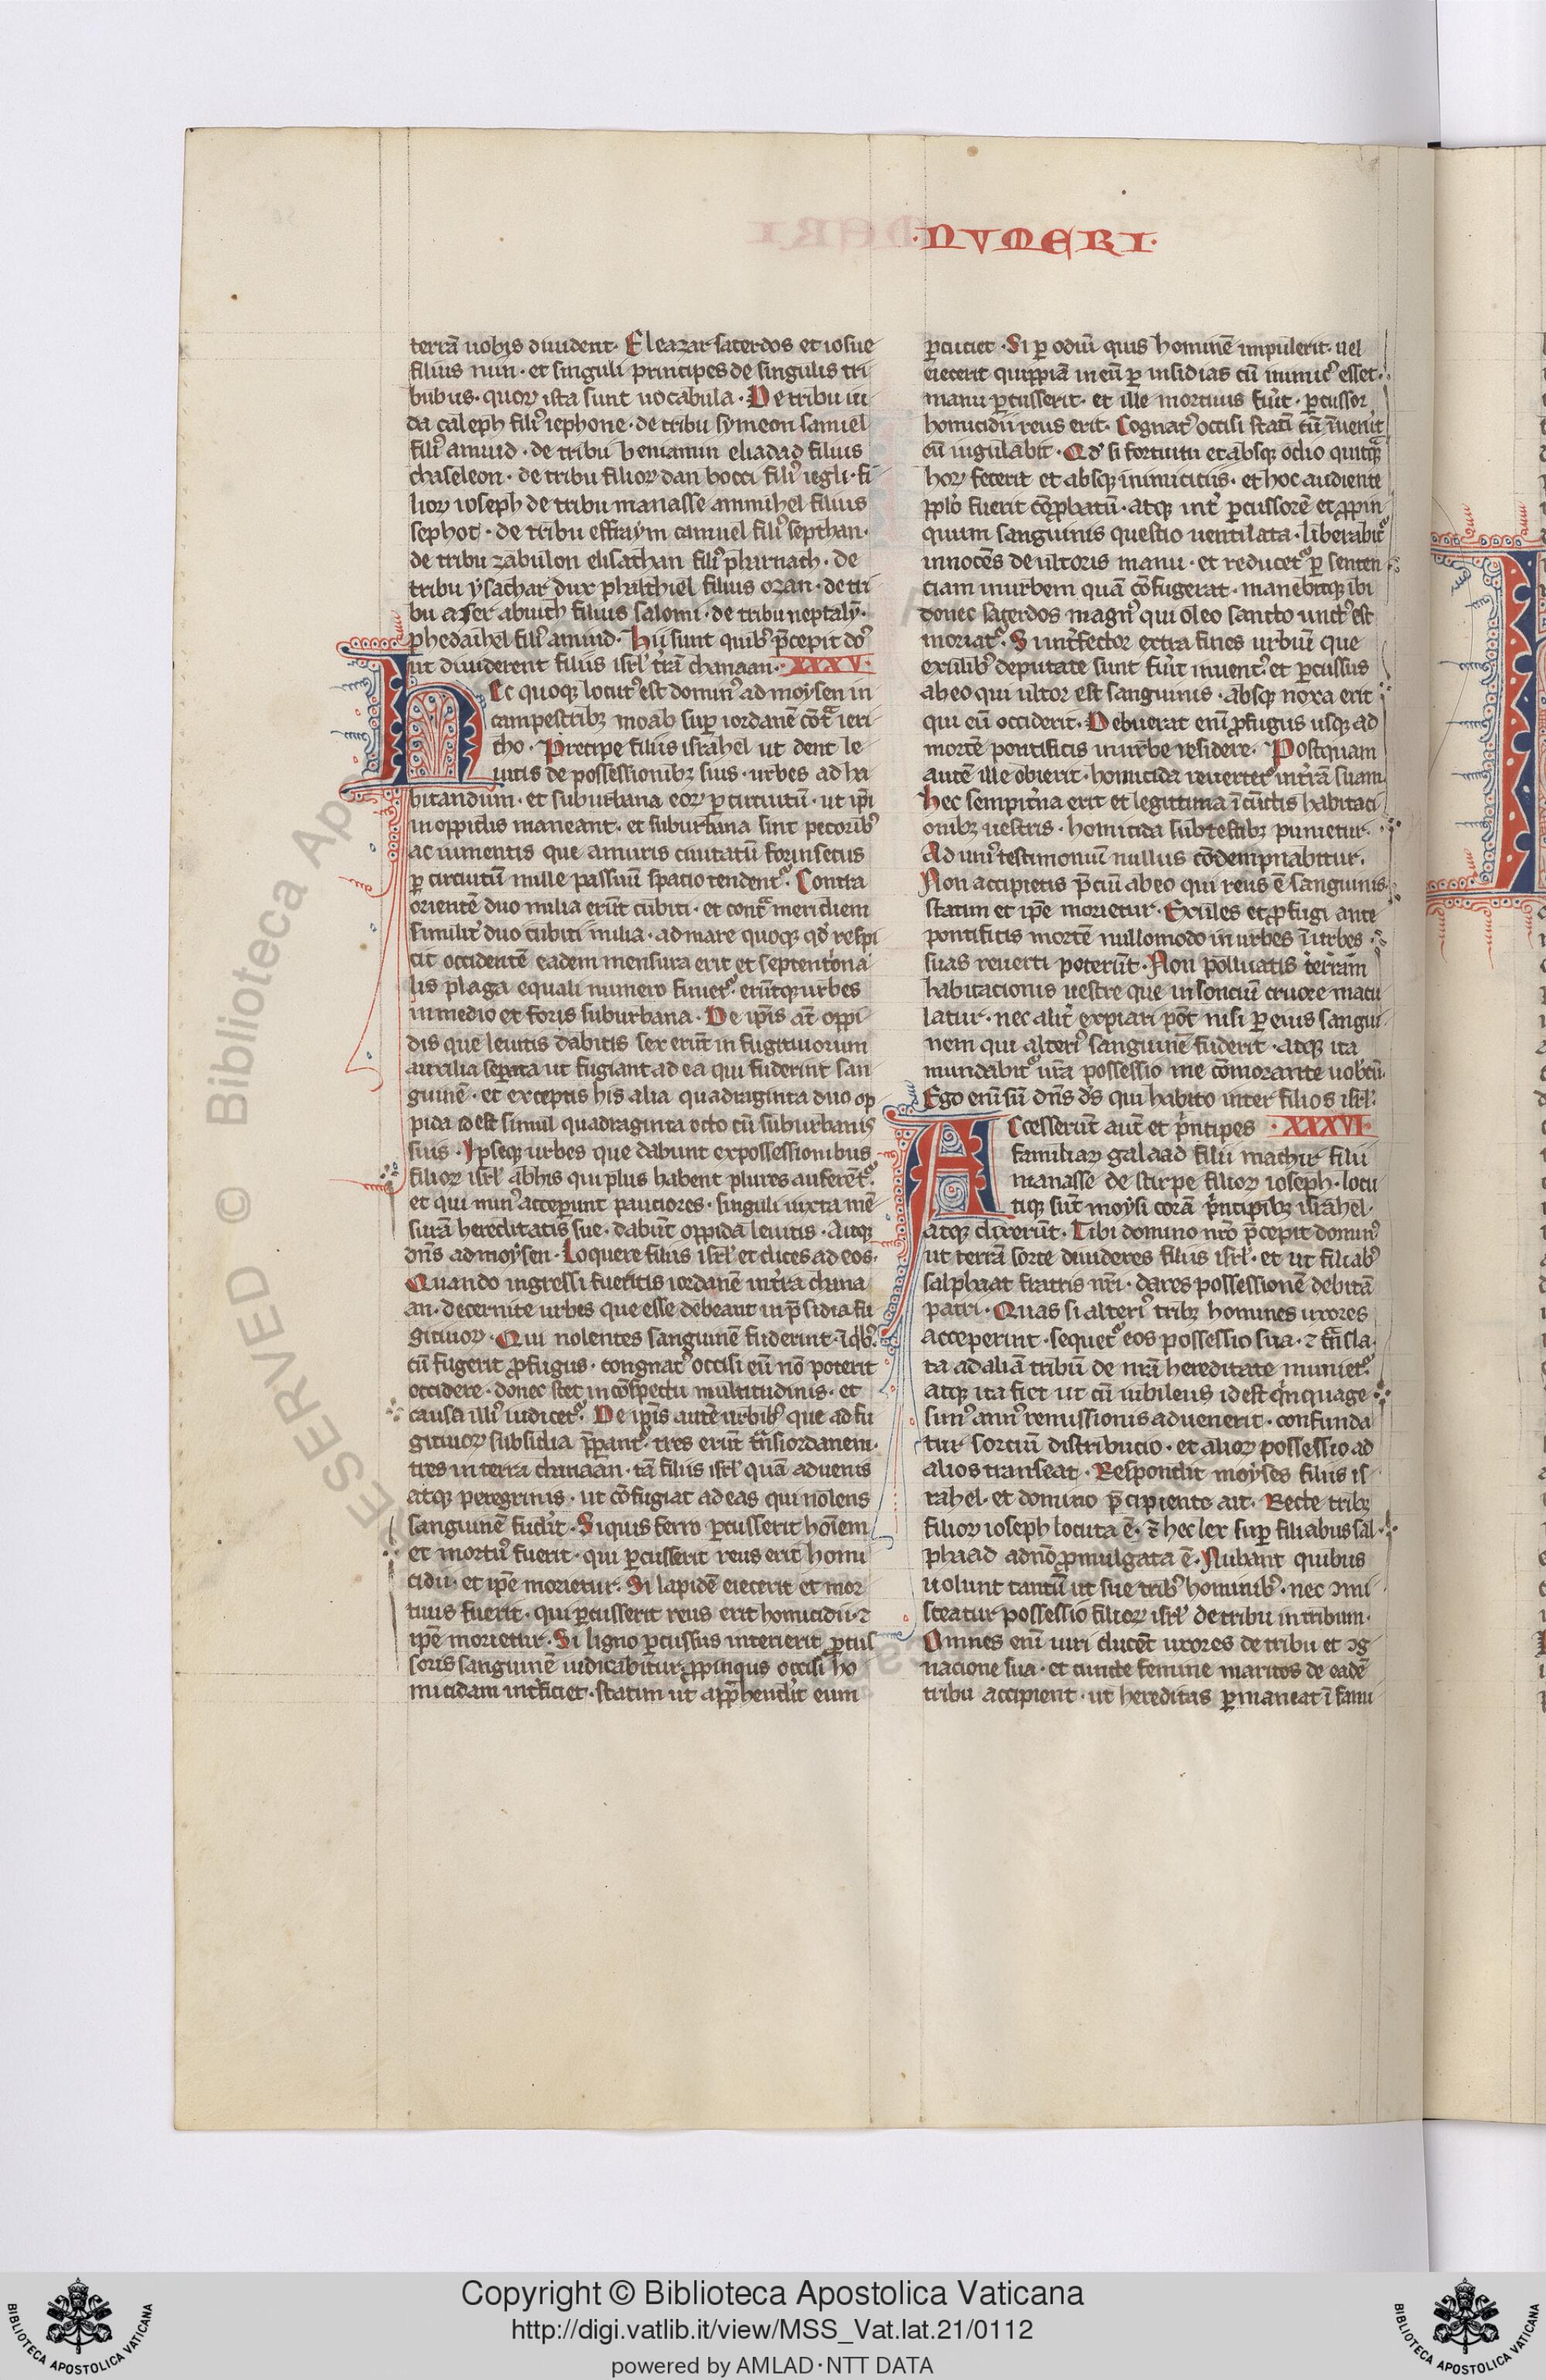 ·NVMERI·
terrã uobis diuident. Eleazar sacerdos et iosue
filius nun · et singuli principes de singulis tri
bubus · quoꝝ ista sunt uocabula · De tribu iu
da caleph fili⁹ iephone · de tribu symeon samuel
fili⁹ amiud · de tribu beniamin eliadad filius
chaseleon · de tribu filioꝝ dan bocci fili⁹ iegli · fi
lioꝝ ioseph de tribu manasse ammihel filius
sephot · de tribu effraym camuel fili⁹ septhan ·
de tribu zabulon elisathan fili⁹ pharnach · de
tribu ysachar dux phalthiel filius ozan · de tri
bu aser abiuth filius salomi · de tribu neptaly ·
phedaihel fili⁹ amiud · Hii sunt quib⁹ p̃cepit do⁹
ut diuiderent filiis isrl̃ t̃rã chanaan · XXXV ·
HEc quoqꝫ locut⁹ est domin⁹ ad moysen in
campestribꝫ moab sup̱ iordanẽ cõt̃ ieri
cho · Precipe filiis israhel ut dent le
uitis de possessionibꝫ suis · urbes ad ha
bitandum · et suburbana eoꝝ ꝑ circuitũ · ut ip̃i
in oppidis maneant · et suburbana sint pecorib⁹
ac iumentis que a muris ciuitatũ forinsecus
ꝑ circuitũ mille passuũ spacio tendent᷑ · Contra
orientẽ duo milia erũt cubiti · et cont̃ meridiem
similit̃ duo cubiti milia · ad mare quoqꝫ qd̓ respi
cit occidentẽ eadem mensura erit et septentriona
lis plaga equali numero finiet᷑ · erũtqꝫ urbes
in medio et foris suburbana · De ip̃is at̃ oppi
dis que leuitis dabitis sex erũt in fugitiuorum
auxilia sep̱ata ut fugiant ad ea qui fuderint san
guinẽ · et exceptis his alia quadraginta duo op
pida id est simul quadraginta octo cũ suburbanis
suis · Ipseqꝫ urbes que dabunt ex possessionibus
filioꝝ isrl̃ ab hiis qui plus habent plures auferẽt᷑ ·
et qui min⁹ acceperunt pauciores · singuli iuxta mẽ
surã hereditatis sue · dabũt oppida leuitis · Aitqꝫ
dñs ad moysen · Loquere filiis isrl̃ et dices ad eos ·
Quando ingressi fueritis iordanẽ in t̃ra chana
an · decernite urbes que esse debeant in p̃sidia fu
gitiuoꝝ · Qui nolentes sanguinẽ fuderint · ĩ qb⁹
cũ fugerit ꝓfugus · congnat⁹ occisi eũ nõ poterit
occidere · donec stet in cõspectu multitudinis · et
causa illi⁹ iudicet᷑ · De ip̃is autẽ urbib⁹ que ad fu
gitiuoꝝ subsidia p̃parant᷑ · tres erũt tr̃ns iordanem ·
tres in terra chanaan · tã filiis isrl̃ quã aduenis
atqꝫ peregrinis · ut cõfugiat ad eas qui nolens
sanguinẽ fud̓it · Siquis ferro ꝑcusserit hoĩem
et mortu⁹ fuerit · qui ꝑcusserit reus erit homi
cidii · et ip̃e morietur · Si lapidẽ eiecerit et mor
tuus fuerit · qui ꝑcusserit reus erit homicidii · ⁊
ip̃e morietur · Si ligno ꝑcussus interierit ꝑcus
soris sanguinẽ uidicabitur · ꝓpinqus occisi ho
micidam int̓ficiet · statim ut app̃hend̓it eum
ꝑcutiet · Si ꝑ odiũ quis hominẽ impulerit · uel
eiecerit quippiã in eũ ꝑ insidias cũ inimic⁹ esset ·
manu ꝑcusserit · et ille mortuus fũit · ꝑcussor
homicidii reus erit · Cognat⁹ occisi statĩ cũ ĩuen̓it
eũ iugulabit · Qd̓ si fortuitu et absqꝫ odio quitqꝫ
hoꝝ fecerit et absqꝫ inimicitiis · et hoc audiente
pplo fuerit cõꝓbatũ · atqꝫ int̓ ꝑcussorẽ et ꝓpin
quum sanguinis questio uentilata · liberabit᷑
innocẽs de ultoris manu · et reducet᷑ ꝑ senten
ciam in urbem quã cõfugerat · manebitqꝫ ibi
donec sacerdos magn⁹ qui oleo sancto unct⁹ est
moriat᷑ · Si int̓fector extra fines urbiũ que
exulib⁹ deputate sunt fũit inuent⁹ et ꝑcussus
ab eo qui ultor est sanguinis · absqꝫ noxa erit
qui eũ occiderit · Debuerat enĩ ꝓfugus usqꝫ ad
mortẽ pontificis in urbe residere · Postquam
autẽ ille obierit · homicida reuertet᷑ in t̓rã suam
Hec sempit̓na erit et legittima ĩ cũctis habitaci
onibꝫ uestris · homicida sub testibꝫ punietur ·
Ad uni⁹ testimoniũ nullus cõdempnabitur ·
Non accipietis p̃ciũ ab eo qui reus ẽ sanguinis ·
statim et ip̃e morietur · Exules et ꝓfugi ante
pontificis mortẽ nullomodo in urbes ĩ urbes
suas reuerti poterũt · Non polluatis terram
habitacionis uestre que insonciũ cruore macu
latur · nec alit̓ expiari põt nisi ꝑ eius sangui
nem qui alteri⁹ sanguinẽ fuderit · atqꝫ ita
mundabit᷑ ur̃a possessio me cõmorante uob̓cũ ·
Ego enĩ sũ dñs ds̃ qui habito inter filios isrl̃ ·
ACcesserũt aut̃ et p̓ncipes · XXXVI ·
familiaꝝ galaad filii machir filii
manasse de stirpe filioꝝ ioseph · locu
tiqꝫ sũt moysi corã p̓ncipibꝫ israhel ·
atqꝫ dixerũt · Tibi domino nr̃o p̃cepit domin⁹
ut terrã sorte diuideres filiis isrl̃ · et ut filiab⁹
salphaat fratris nr̃i · dares possessionẽ debitã
patri · Quas si alteri⁹ tribꝫ homines uxores
acceperint · sequet᷑ eos possessio sua · ⁊ tr̃nsla
ta ad aliã tribũ de nr̃a hereditate muniet᷑
atqꝫ ita fiet ut cũ iubileus id est q̓nquage
sim⁹ ann⁹ remissionis aduenerit · confunda
tur sorciũ distribucio · et alioꝝ possessio ad
alios transeat · Respondit moyses filiis is
rahel · et domino p̃cipiente ait · Recte tribꝫ
filioꝝ ioseph locuta ẽ · ⁊ hec lex sup̱ filiabus sal
phaad a dño ꝓmulgata ẽ · Nubant quibus
uolunt tantũ ut sue trib⁹ hominib⁹ · nec ↄmi
sceatur possessio filioꝝ isrl̃ de tribu in tribum ·
Omnes enĩ uiri ducẽt uxores de tribu et ↄg
nacione sua · et cuncte femine maritos de eadẽ
tribu accipient · ut hereditas ꝑmaneat ĩ fami
© Biblioteca Ap
ESERVED
BIBLIOTECA APOSTOLICA VATICANA
Copyright © Biblioteca Apostolica Vaticana
http://digi.vatlib.it/view/MSS_Vat.lat.21/0112
powered by AMLAD·NTT DATA
BIBLIOTECA APOSTOLICA VATICANA